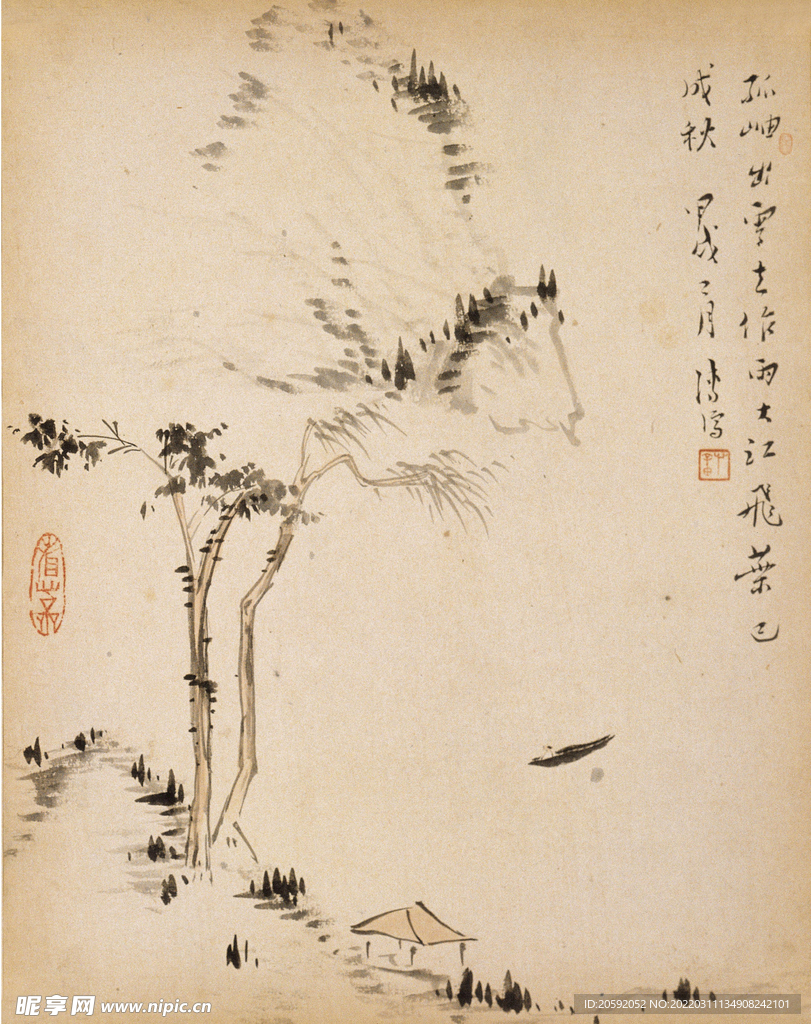 孤岫出雲去作雨大江飛葉已
成秋 甲戌 月 寫
昵享网 www.nipic.cn
ID:20592052 NO:20220311134908242101